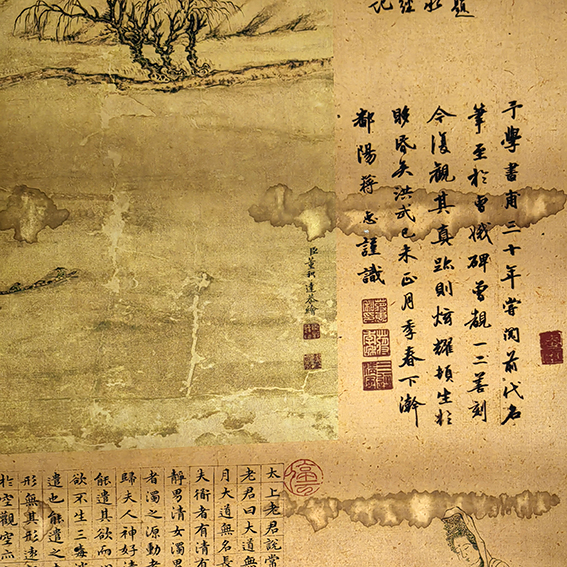 題
予學書甫三十年嘗閱前代名
筆至於曹娥碑曾觀一二善刻
今復觀其真跡則炫耀頓生於
眵昏矣洪武己未正月季春下澣
鄱陽蔣謹識
臣董邦達恭繪
太上老君說常
老君曰大道無
月大道無名長
夫道者有清有
靜男清女濁男
者濁之源動者
歸夫人神好清
能遣其欲而
欲不生三毒消
遣也能遣之
形無其形遠
於空觀空亦